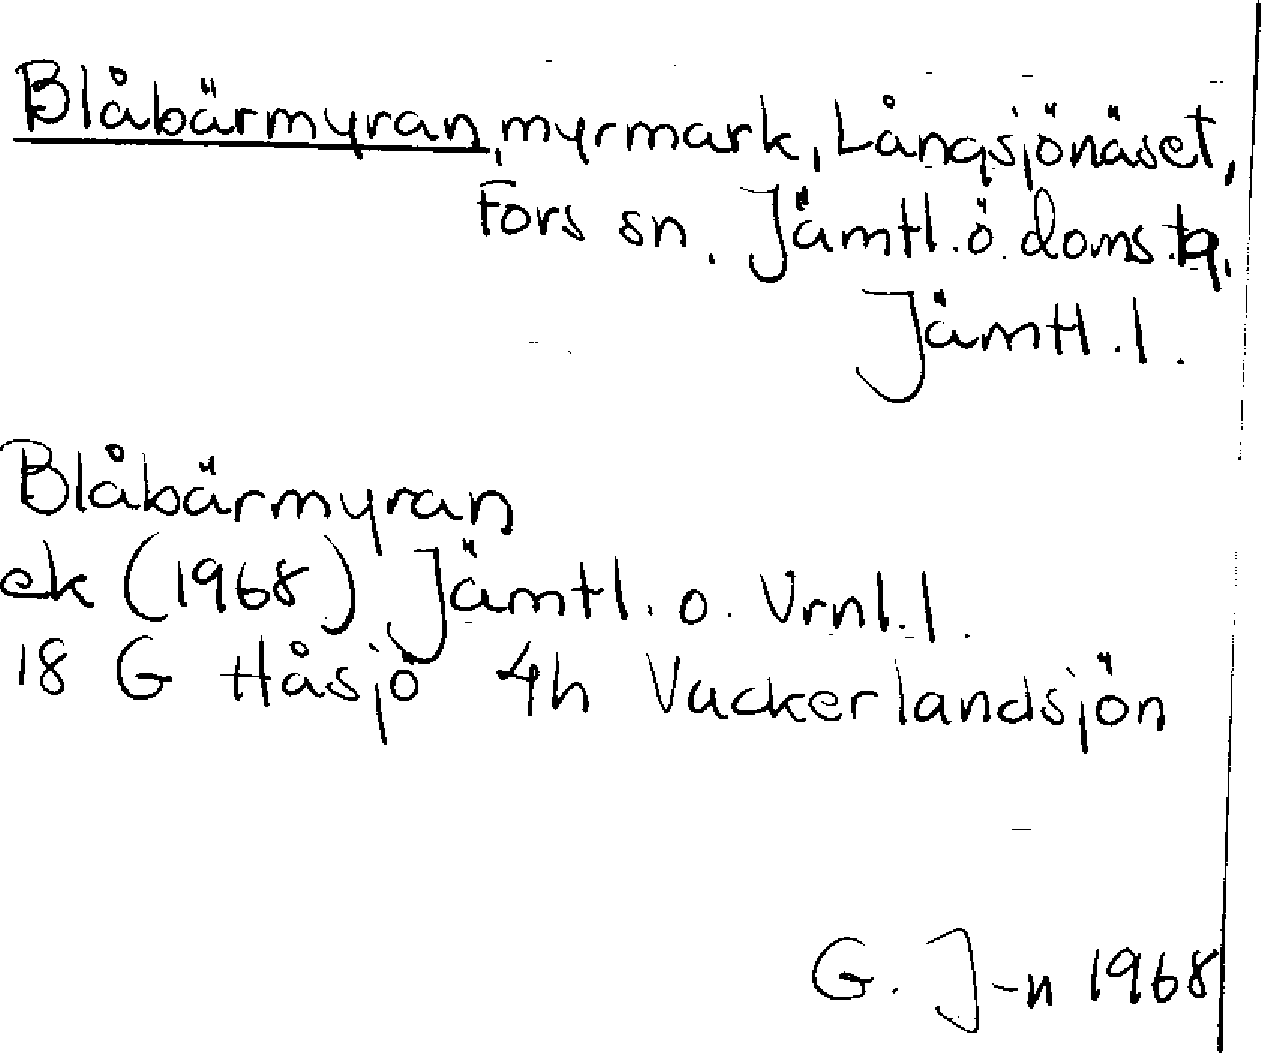 Blåbärmyran, myrmark, Långsjönäset,
Fors sn. Jämtl. ö. doms.
Jämtl. l.
Blåbärmyran
ek (1968) Jämtl. o. Vrnl. l.
18 G Håsjö 4h Vackerlandsjön
G. J-n 1968